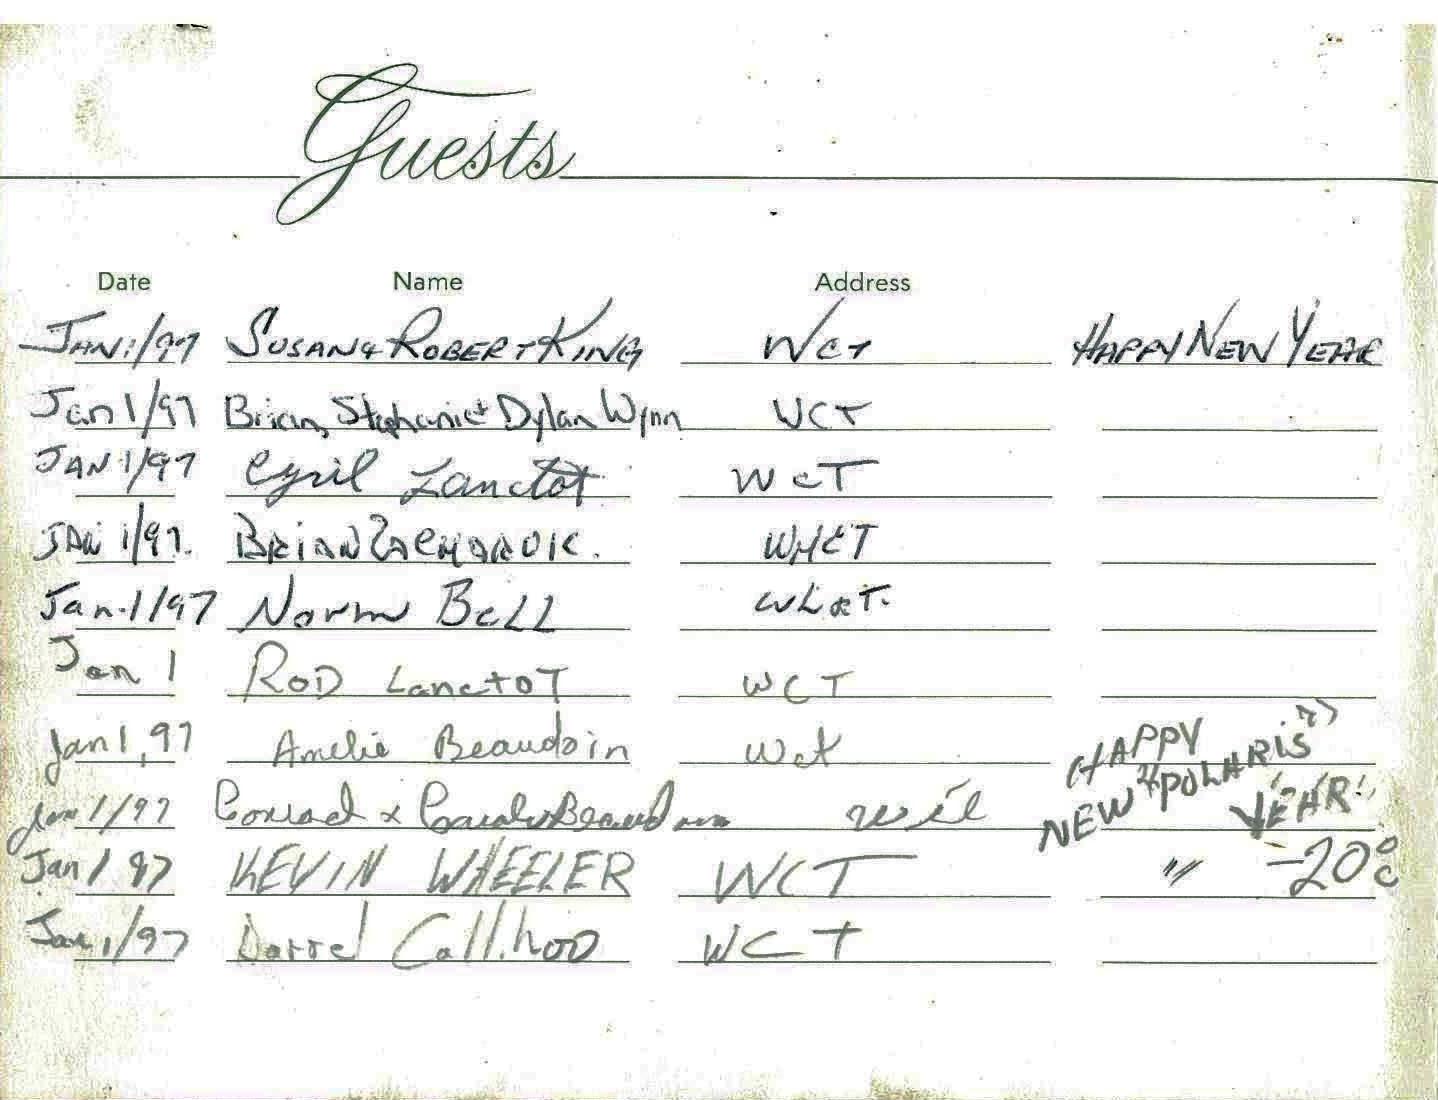 Guests
Date Name Address
JAN 1/97 SUSAN & ROBERT KING WCT HAPPY NEW YEAR
Jan 1/97 Brian, Stephanie + Dylan Wynn WCT
JAN 1/97 Cyril Lanctot WCT
JAN 1/97. BRIAN ZACHARUK. WHCT
Jan. 1/97 Norm Bell
Jan 1 ROD Lanctot WCT
Jan 1, 97 Amelie Beaudoin Wct
HAPPY
NEW "POLHRIS" YEAR!
Jan 1/97 Conrad &
Jan 1 97 KEVIN WHEELER WCT " -20°C
Jan 1/97 Darrel WCT